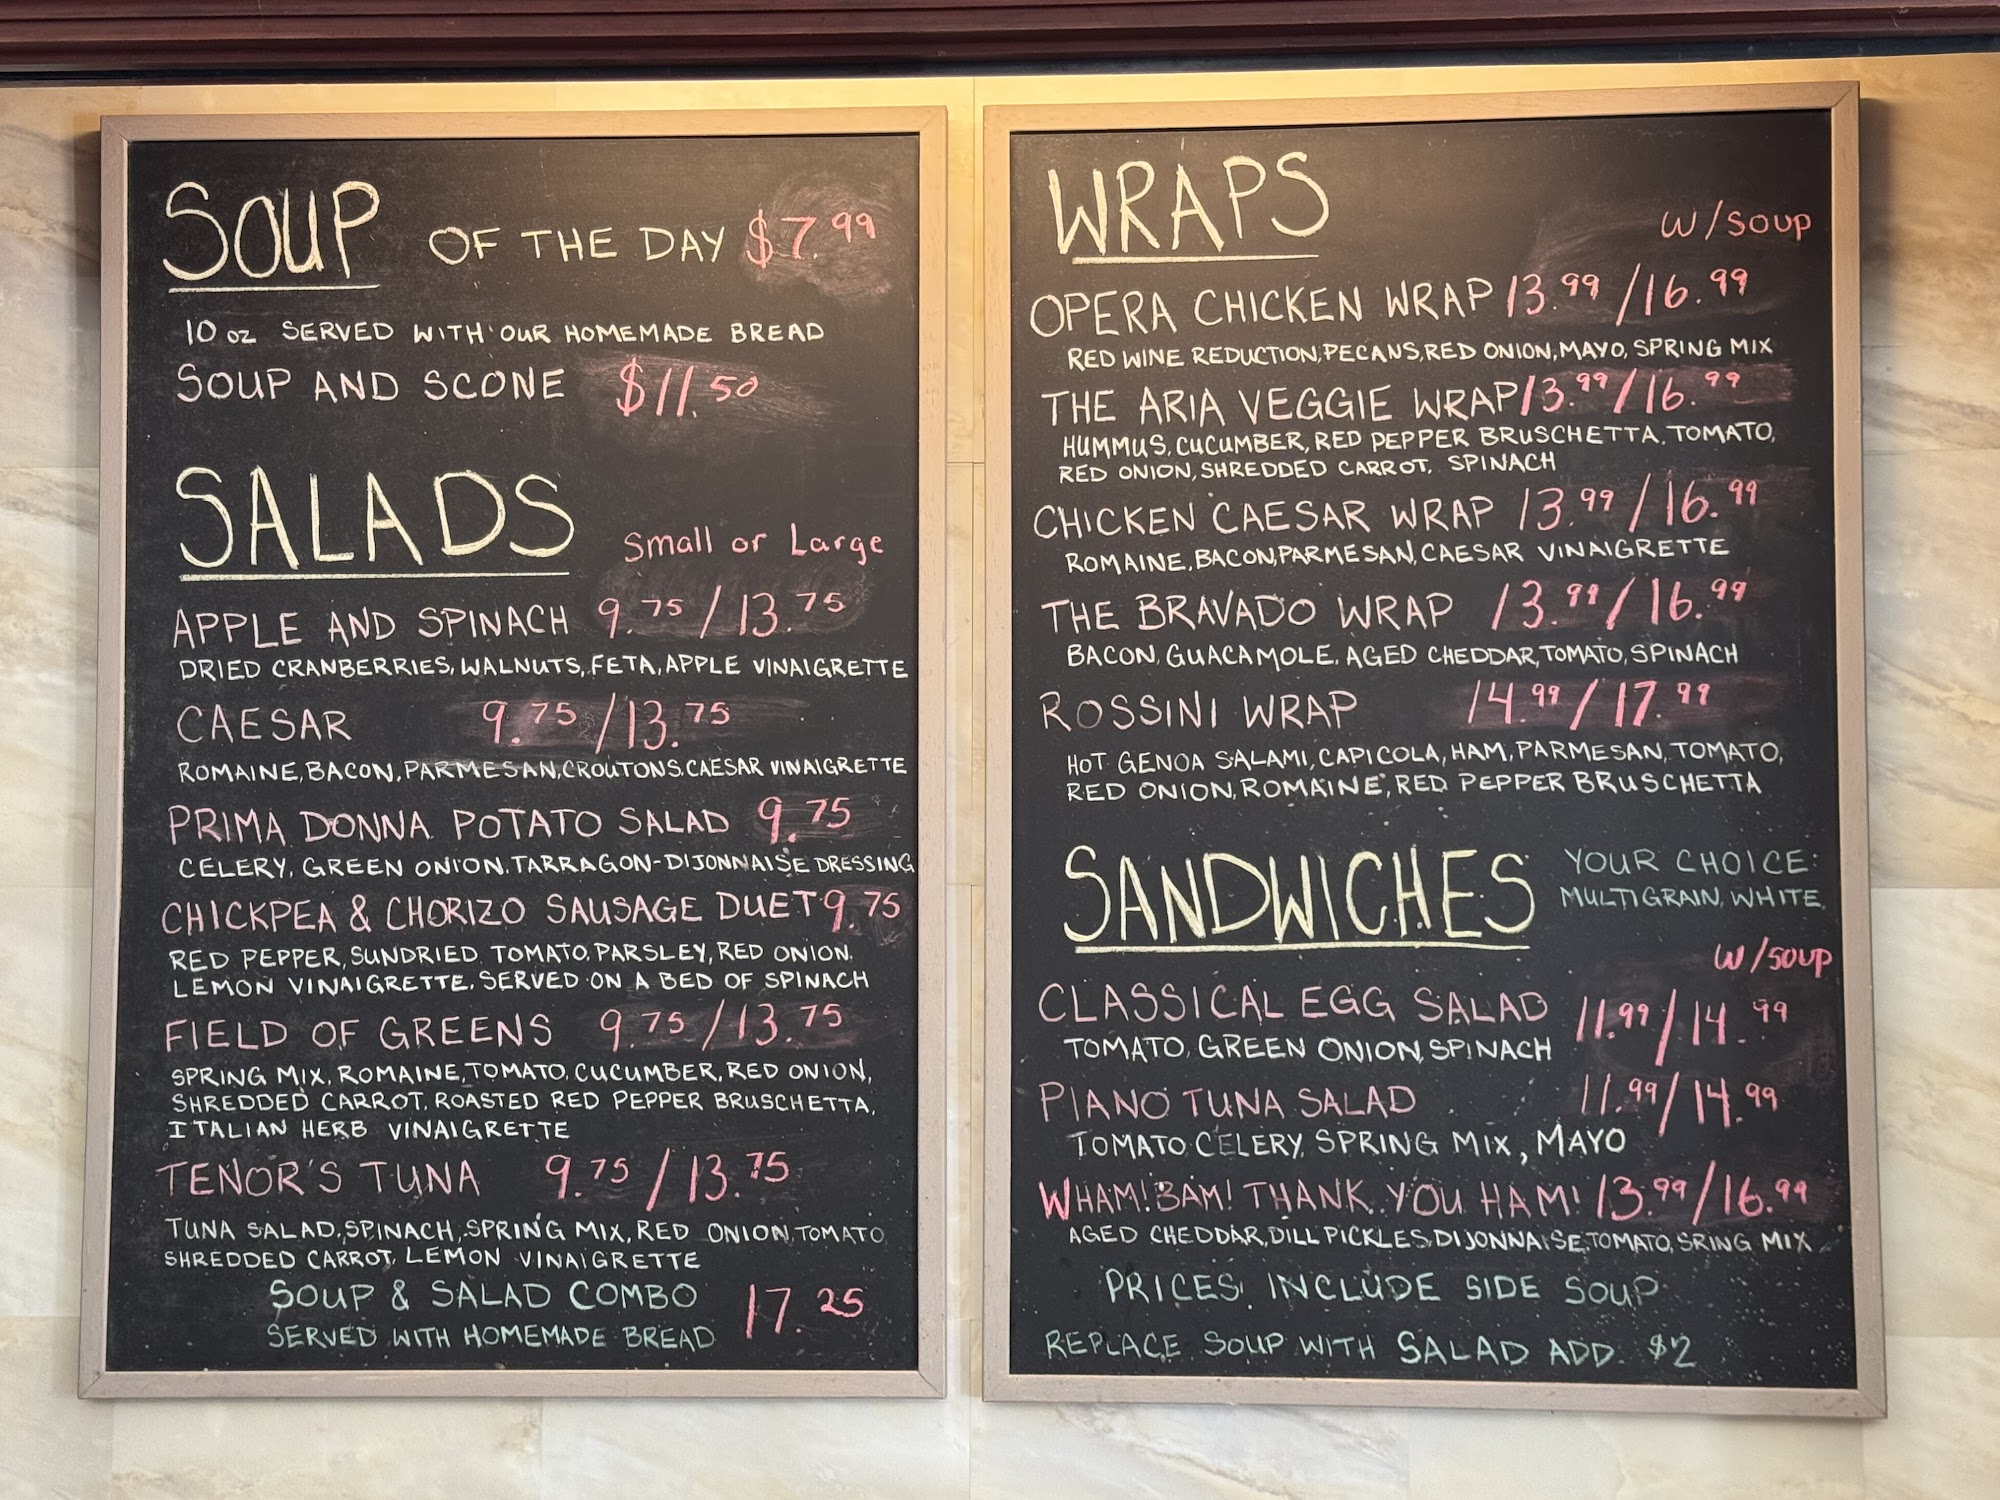 SOUP OF THE DAY $7.99
10 oz SERVED WITH OUR HOMEMADE BREAD
SOUP AND SCONE $11.50
SALADS Small or Large
APPLE AND SPINACH 9.75/13.75
DRIED CRANBERRIES, WALNUTS, FETA, APPLE VINAIGRETTE
CAESAR 9.75/13.75
ROMAINE, BACON, PARMESAN, CROUTONS, CAESAR VINAIGRETTE
PRIMA DONNA POTATO SALAD 9.75
CELERY, GREEN ONION, TARRAGON-DIJONNAISE DRESSING
CHICKPEA & CHORIZO SAUSAGE DUET 9.75
RED PEPPER, SUNDRIED TOMATO, PARSLEY, RED ONION,
LEMON VINAIGRETTE, SERVED ON A BED OF SPINACH
FIELD OF GREENS 9.75/13.75
SPRING MIX, ROMAINE, TOMATO, CUCUMBER, RED ONION,
SHREDDED CARROT, ROASTED RED PEPPER BRUSCHETTA,
ITALIAN HERB VINAIGRETTE
TENOR'S TUNA 9.75/13.75
TUNA SALAD, SPINACH, SPRING MIX, RED ONION, TOMATO
SHREDDED CARROT, LEMON VINAIGRETTE
SOUP & SALAD COMBO 17.25
SERVED WITH HOMEMADE BREAD
WRAPS
W/SOUP
OPERA CHICKEN WRAP 13.99/16.99
RED WINE REDUCTION, PECANS, RED ONION, MAYO, SPRING MIX
THE ARIA VEGGIE WRAP 13.99/16.99
HUMMUS, CUCUMBER, RED PEPPER BRUSCHETTA, TOMATO,
RED ONION, SHREDDED CARROT, SPINACH
CHICKEN CAESAR WRAP 13.99/16.99
ROMAINE, BACON, PARMESAN, CAESAR VINAIGRETTE
THE BRAVADO WRAP 13.99/16.99
BACON, GUACAMOLE, AGED CHEDDAR, TOMATO, SPINACH
ROSSINI WRAP 14.99/17.99
HOT GENOA SALAMI, CAPICOLA, HAM, PARMESAN, TOMATO,
RED ONION, ROMAINE, RED PEPPER BRUSCHETTA
SANDWICHES YOUR CHOICE:
MULTIGRAIN, WHITE,
W/SOUP
CLASSICAL EGG SALAD 11.99/14.99
TOMATO, GREEN ONION, SPINACH
PIANO TUNA SALAD 11.99/14.99
TOMATO CELERY, SPRING MIX, MAYO
WHAM! BAM! THANK YOU HAM! 13.99/16.99
AGED CHEDDAR, DILL PICKLES, DIJONNAISE, TOMATO, SRING MIX
PRICES INCLUDE SIDE SOUP
REPLACE SOUP WITH SALAD ADD $2